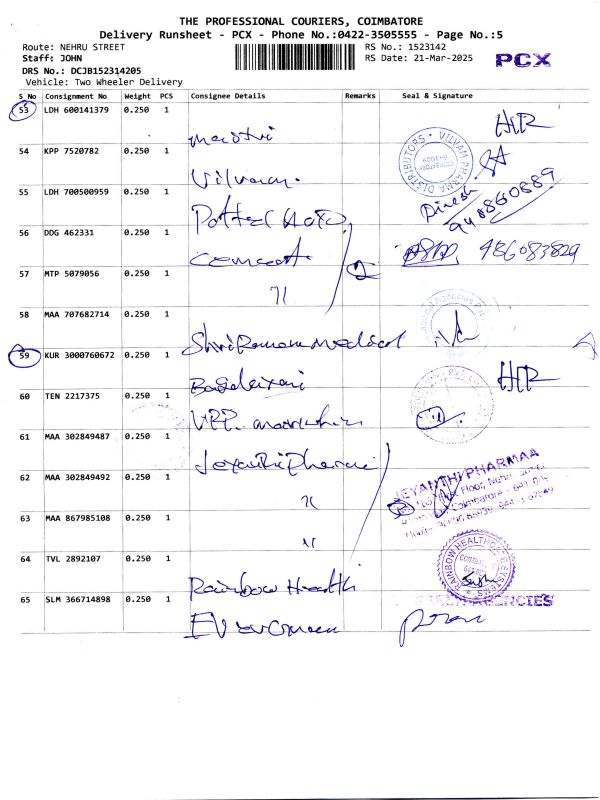 THE PROFESSIONAL COURIERS, COIMBATORE
Delivery Runsheet - PCX - Phone No.:0422-3505555 - Page No.:5
Route: NEHRU STREET
RS No.: 1523142
Staff: JOHN
RS Date: 21-Mar-2025
PCX
DRS No.: DCJB152314205
Vehicle: Two Wheeler Delivery
S_No Consignment No Weight PCS Consignee Details Remarks Seal & Signature
53 LDH 600141379 0.250 1 HR
54 KPP 7520782 0.250 1 Vilvam VILVAM PHARMA DISTRIBUTORS
55 LDH 700500959 0.250 1 Dinesh
56 DDG 462331 0.250 1
57 MTP 5079056 0.250 1 11 2
58 MAA 707682714 0.250 1 Shri Ramana medical
59 KUR 3000760672 0.250 1 HR
60 TEN 2217375 0.250 1
61 MAA 302849487 0.250 1 Jeyanthi Pharma JEYANTHI PHARMAA
62 MAA 302849492 0.250 1 11
63 MAA 867985108 0.250 1 11
64 TVL 2892107 0.250 1 Rainbow Health RAINBOW HEALTHCARE SYSTEMS
65 SLM 366714898 0.250 1 Evergreen AGENCIES